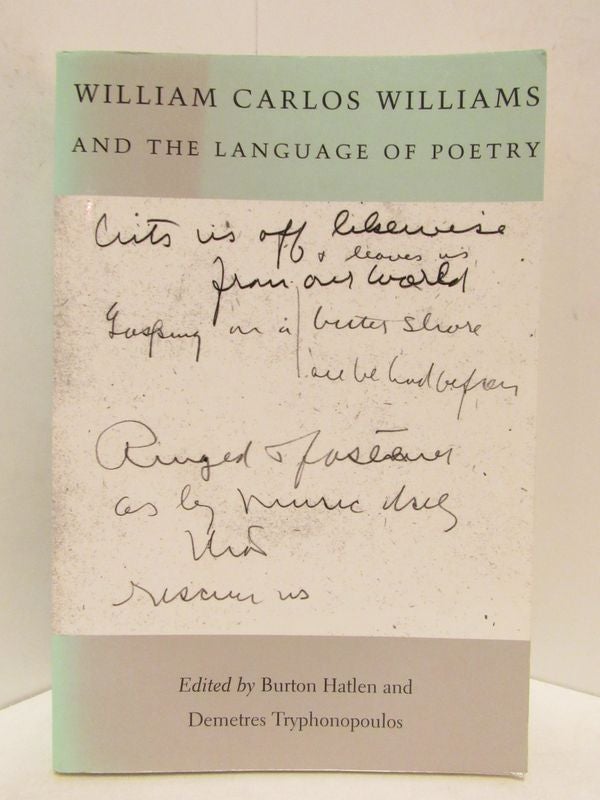 WILLIAM CARLOS WILLIAMS
AND THE LANGUAGE OF POETRY
Cuts us off likewise
& leaves us
from our world
Gasping on a bitter shore
Ringed & fastened
as by music itself
rescues us
Edited by Burton Hatlen and
Demetres Tryphonopoulos